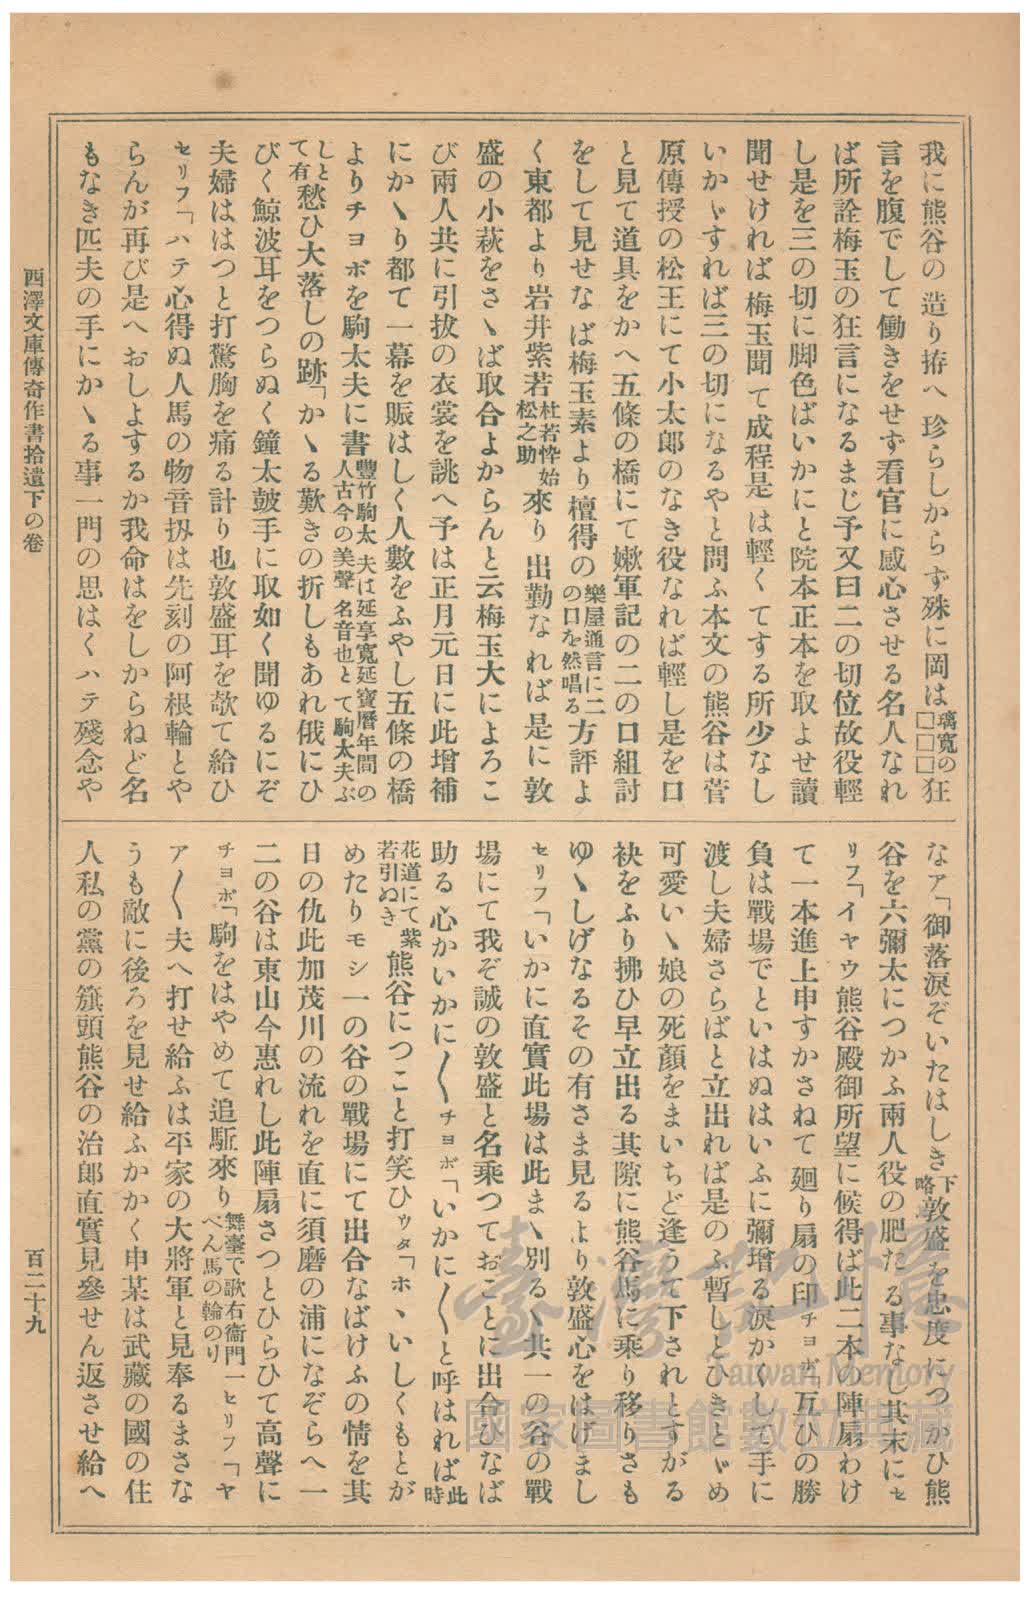 我に熊谷の造り拵へ珍らしからず殊に岡は璃寬の□□□狂
言を腹でして働きをせず看官に感心させる名人なれ
ば所詮梅玉の狂言になるまじ予又曰二の切位故役輕
し是を三の切に脚色ばいかにと院本正本を取よせ讀
聞せければ梅玉聞て成程是は輕くてする所少なし
いかゞすれば三の切になるやと問ふ本文の熊谷は菅
原傳授の松王にて小太郎のなき役なれば輕し是を口
と見て道具をかへ五條の橋にて嫩軍記の二の口組討
をして見せなば梅玉素より檀得の樂屋通言に二の口を然唱る方評よ
く東都より岩井紫若杜若忰始松之助來り出勤なれば是に敦
盛の小萩をさゝば取合よからんと云梅玉大によろこ
び兩人共に引拔の衣裳を誂へ予は正月元日に此增補
にかゝり都て一幕を賑はしく人數をふやし五條の橋
よりチヨボを駒太夫に書豐竹駒太夫は延享寬延寶曆年間の人古今の美聲名音也とて駒太夫ぶ
しとて有愁ひ大落しの跡「かゝる歎きの折しもあれ俄にひ
びく鯨波耳をつらぬく鐘太皷手に取如く聞ゆるにぞ
夫婦ははつと打驚胸を痛る計り也敦盛耳を欹て給ひ
セリフ「ハテ心得ぬ人馬の物音扨は先刻の阿根輪とや
らんが再び是へおしよするか我命はをしからねど名
もなき匹夫の手にかゝる事一門の思はくハテ殘念や
なア「御落淚ぞいたはしき下略敦盛を忠度につかひ熊
谷を六彌太につかふ兩人役の肥たる事なし其末にセ
リフ「イヤウ熊谷殿御所望に候得ば此二本の陣扇わけ
て一本進上申すかさねて廻り扇の印チヨボ「互ひの勝
負は戰場でといはぬはいふに彌增る淚かくして手に
渡し夫婦さらばと立出れば是のふ暫しとひきとゞめ
可愛いゝ娘の死顏をまいちど逢うて下されとすがる
袂をふり拂ひ早立出る其隙に熊谷馬に乘り移りさも
ゆゝしげなるその有さま見るより敦盛心をはげまし
セリフ「いかに直實此場は此まゝ別るゝ共一の谷の戰
場にて我ぞ誠の敦盛と名乘つておことに出合ひなば
助る心かいかに〳〵チヨボ「いかに〳〵と呼はれば此時
花道にて紫若引ぬき熊谷につこと打笑ひウタ「ホヽいしくもとが
めたりモシ一の谷の戰場にて出合なばけふの情を其
日の仇此加茂川の流れを直に須磨の浦になぞらへ一
二の谷は東山今惠れし此陣扇さつとひらひて高聲に
チヨボ「駒をはやめて追駈來り舞臺で歌右衞門一ぺん馬の輪のりセリフ「ヤ
ア〳〵夫へ打せ給ふは平家の大將軍と見奉るまさな
うも敵に後ろを見せ給ふかかく申某は武藏の國の住
人私の黨の籏頭熊谷の治郎直實見參せん返させ給へ
西澤文庫傳奇作書拾遺下の卷
百二十九
臺灣記憶
Taiwan Memory
國家圖書館數位典藏